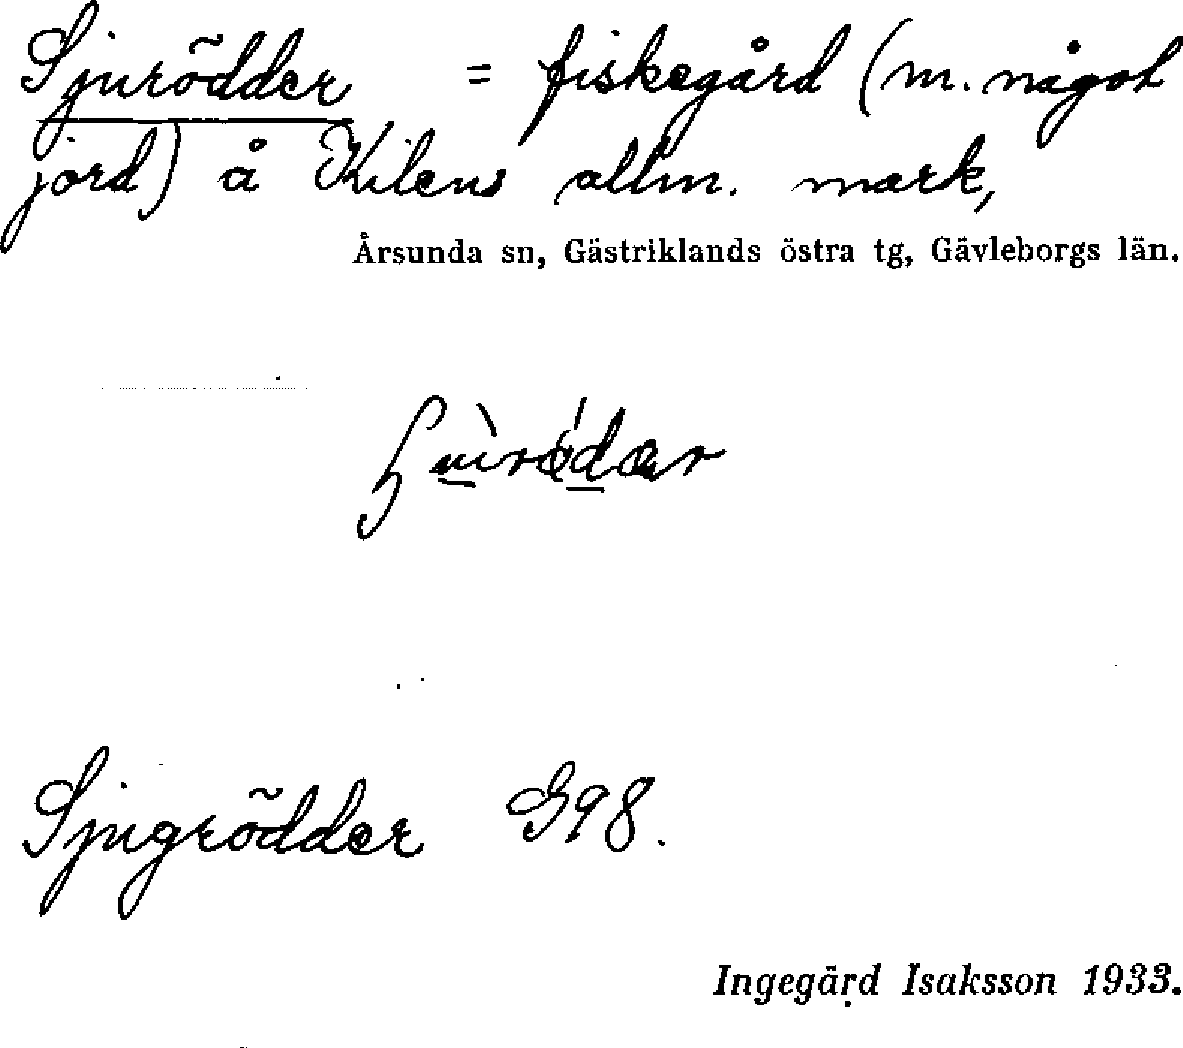 Sjurödder = fiskegård (m. något
jord) å Kilens allm. mark,
Årsunda sn, Gästriklands östra tg, Gävleborgs län.
Sjugrödder G98.
Ingegärd Isaksson 1933.